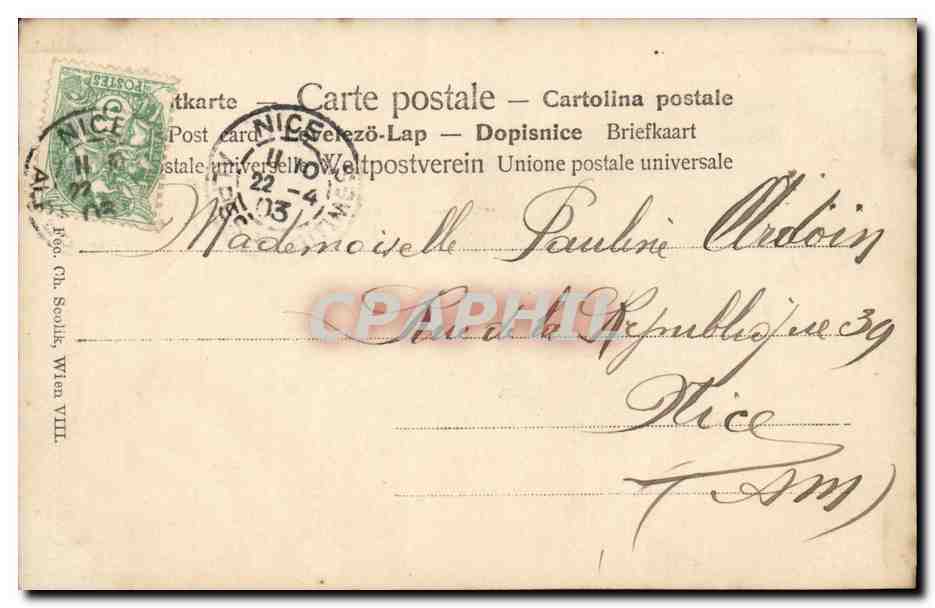 POSTES
tkarte – Carte postale – Cartolina postale
Post card Levelező-Lap – Dopisnice Briefkaart
stale universelle Weltpostverein Unione postale universale
NICE
11
22
03
NICE
11 10
22 -4
03
Mademoiselle Pauline Ardoin
Rue de la République 39
Nice
(AM)
CPAPHIL
Féc. Ch. Scolik, Wien VIII.